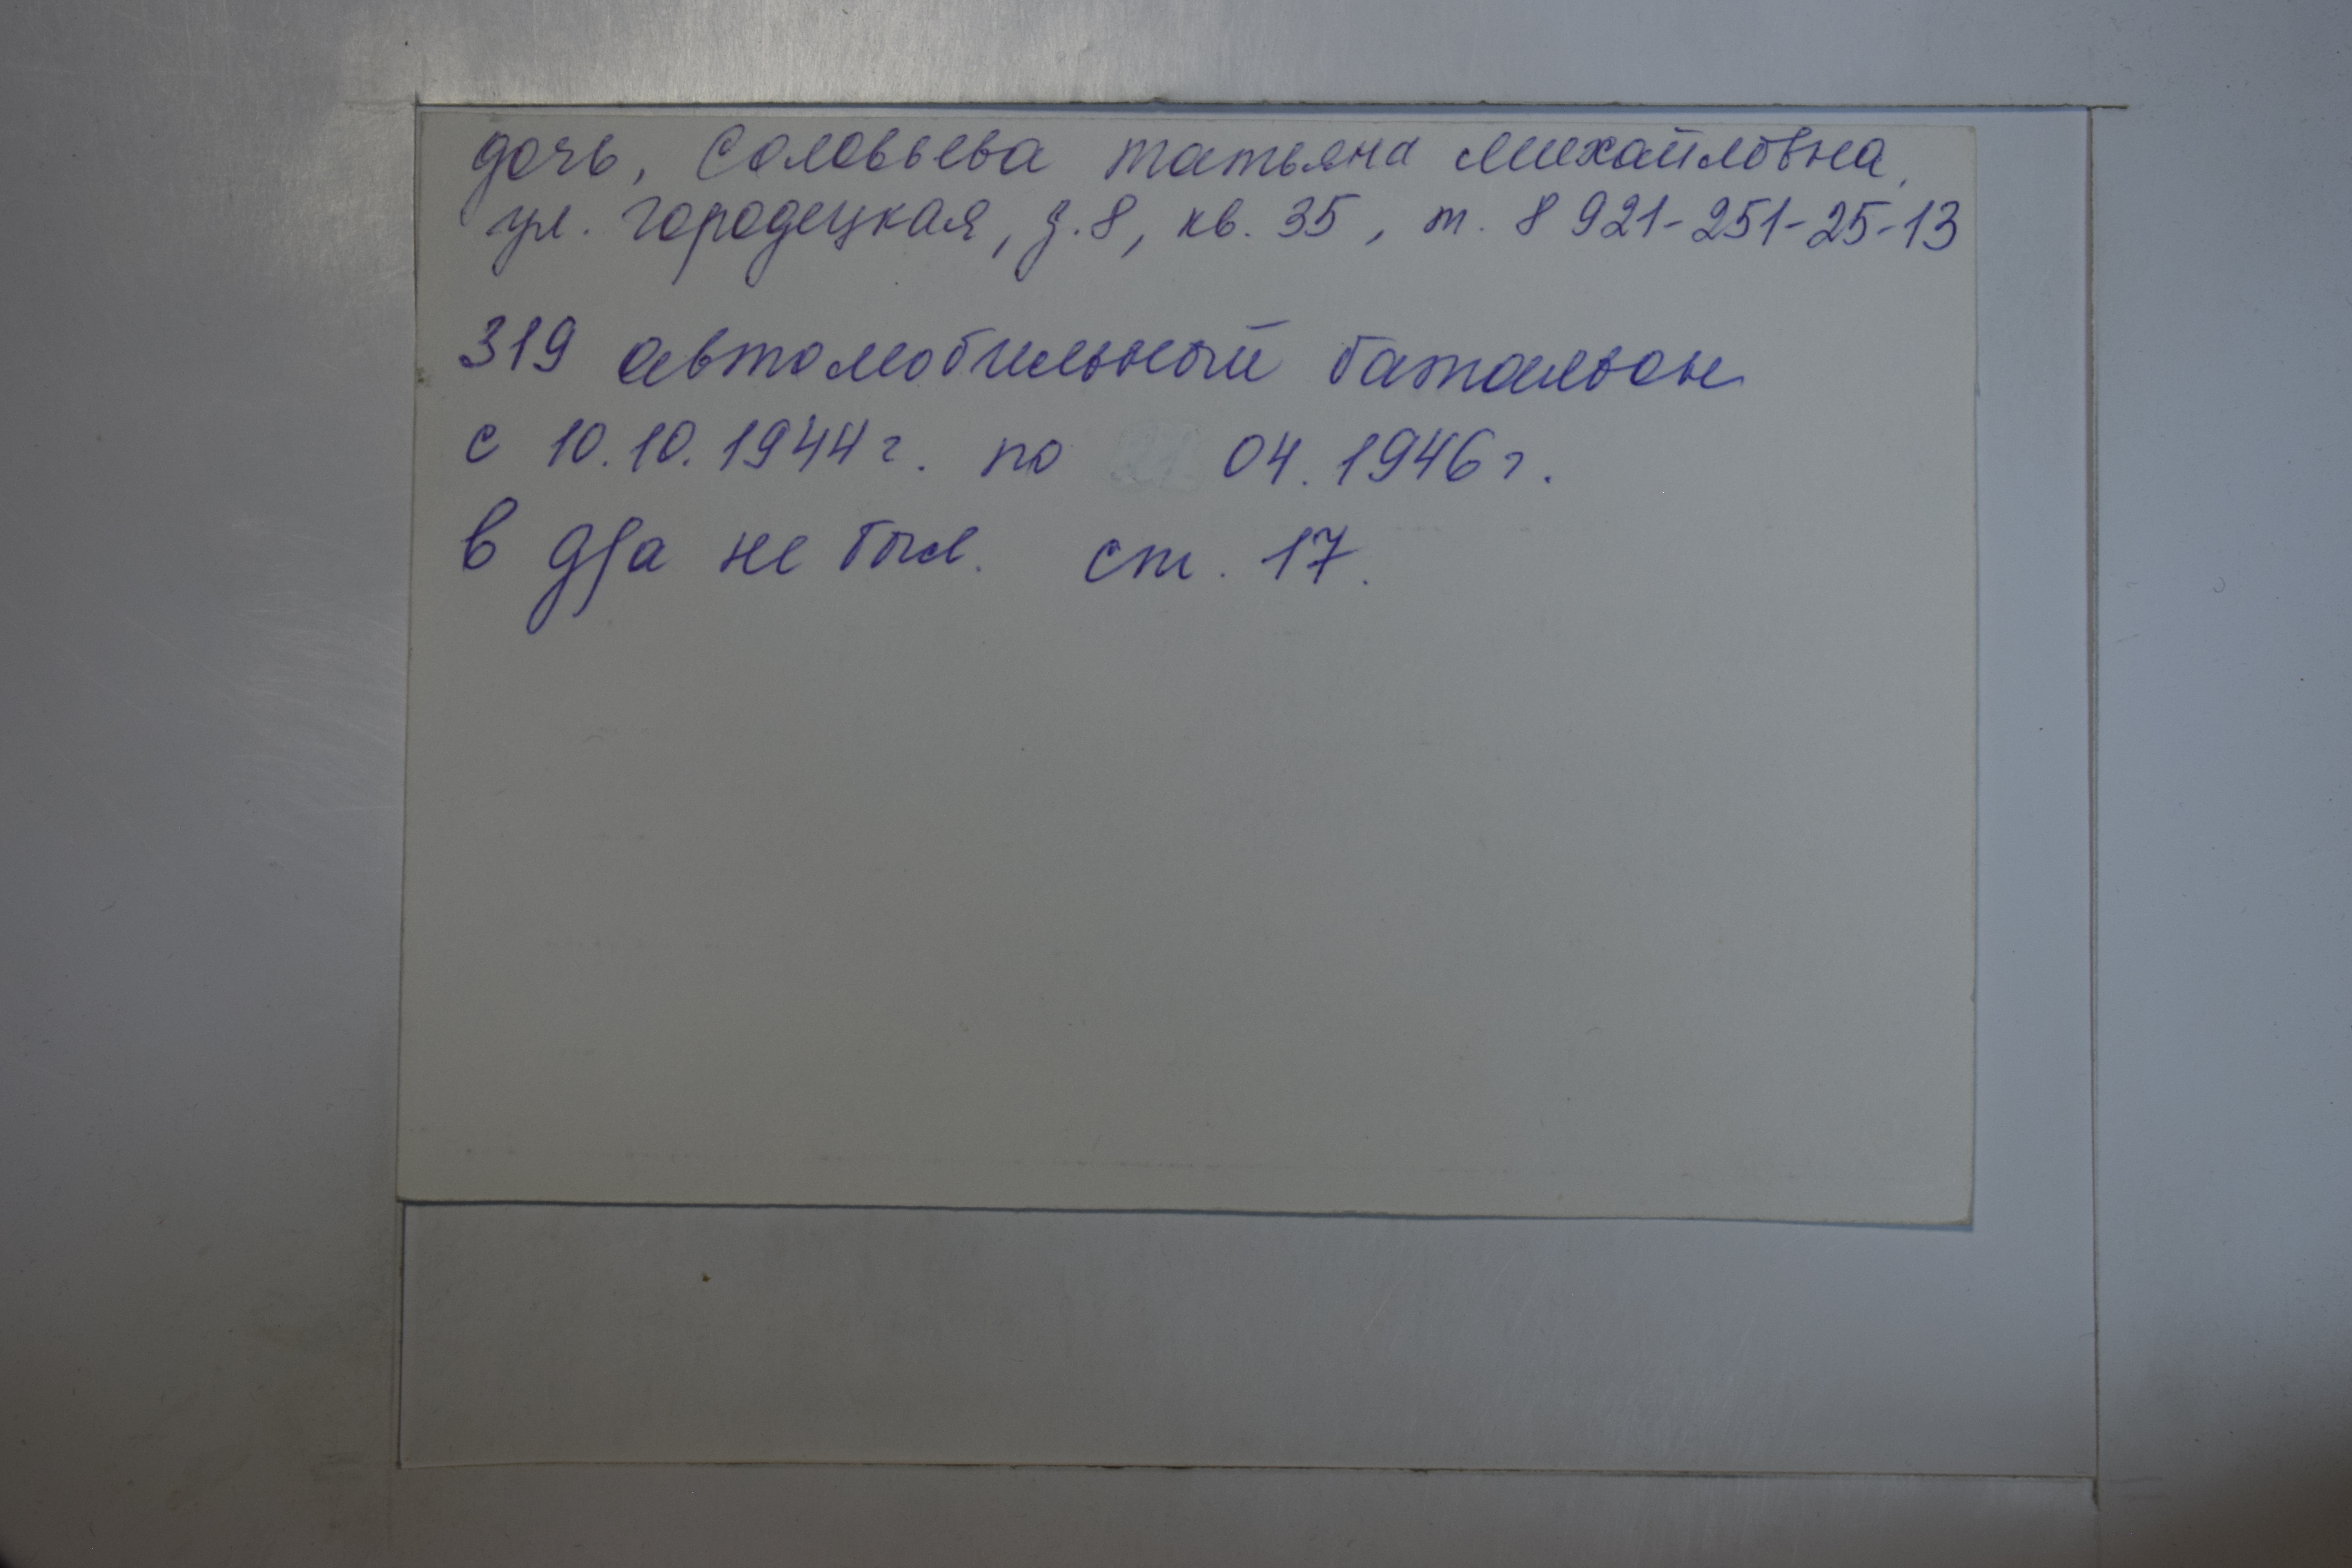 дочь, Соловьева Татьяна Михайловна,
ул. Городецкая, д.8, кв. 35, т. 8 921-251-25-13
319 автомобильный батальон
с 10.10.1944г. по 04.1946г.
в д/а не был. ст. 17.